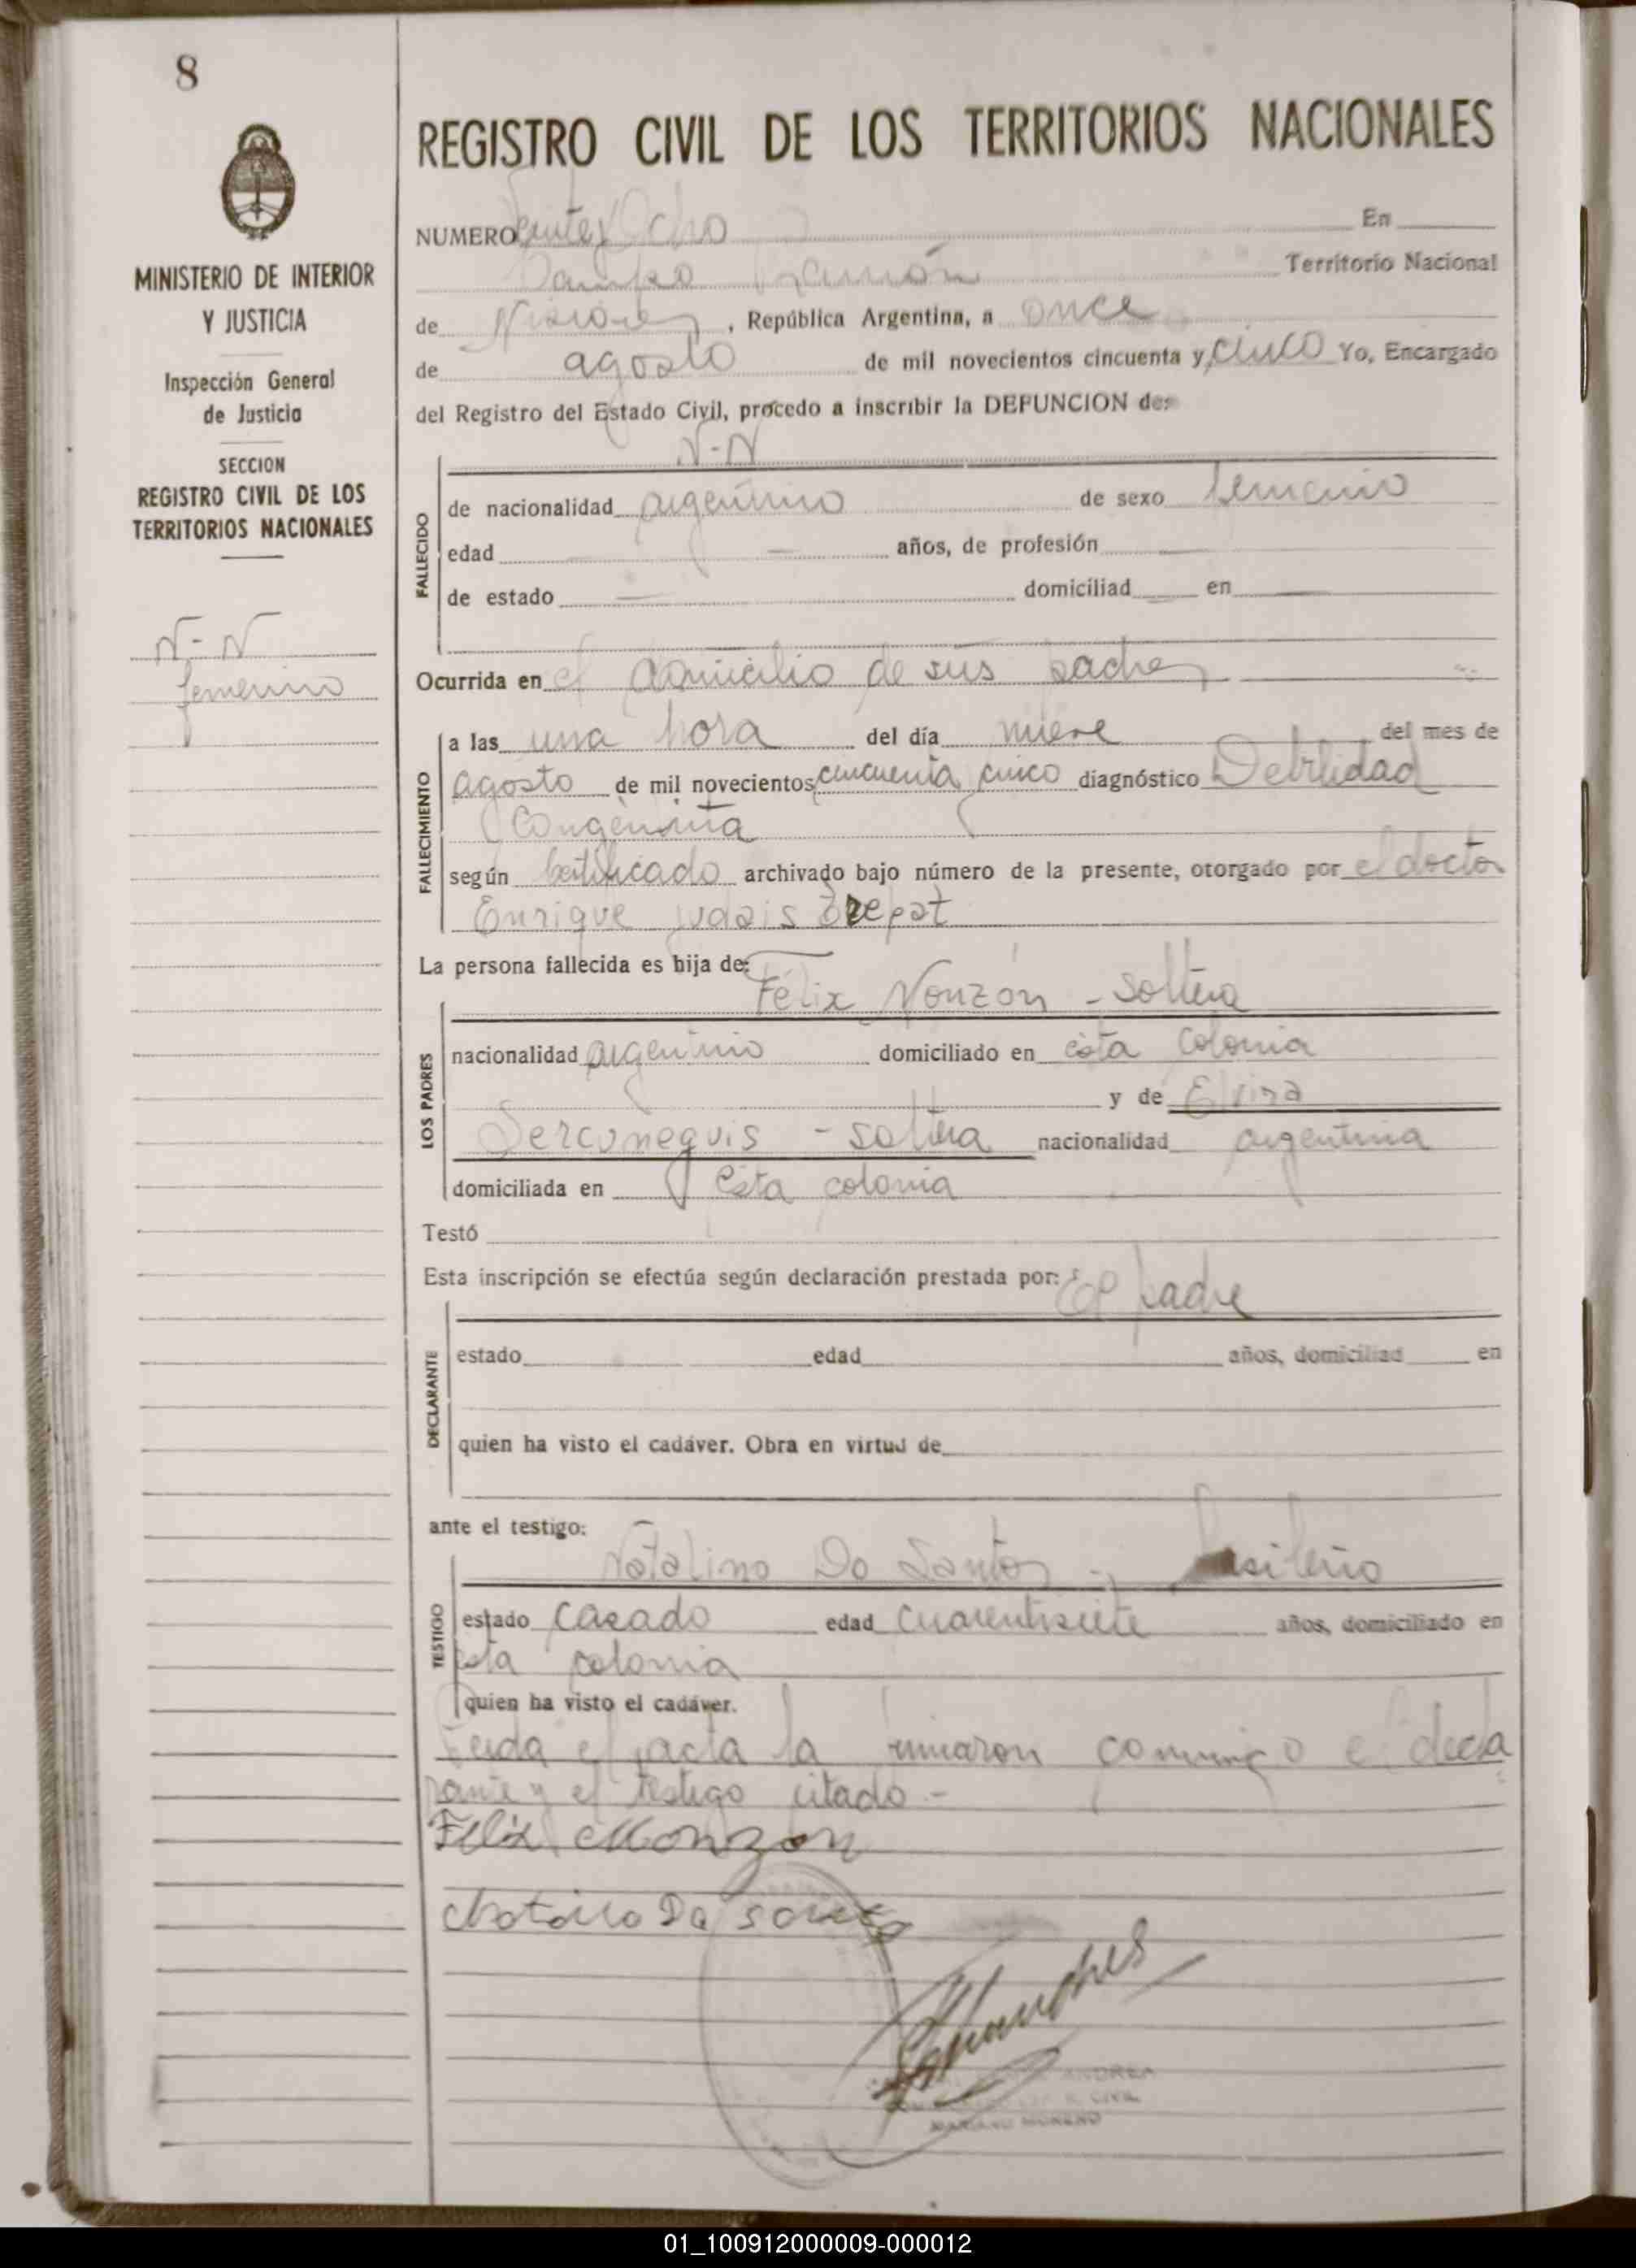 8
MINISTERIO DE INTERIOR
Y JUSTICIA
Inspección General
de Justicia
SECCION
REGISTRO CIVIL DE LOS
TERRITORIOS NACIONALES
N-N
femenino
REGISTRO CIVIL DE LOS TERRITORIOS NACIONALES
NUMERO Veinte y Ocho En
Campo Ramón Territorio Nacional
de Misiones, República Argentina, a once
de agosto de mil novecientos cincuenta y cinco Yo, Encargado
del Registro del Estado Civil, procedo a inscribir la DEFUNCION de:
N-N
FALLECIDO
de nacionalidad argentino de sexo femenino
edad — años, de profesión —
de estado — domiciliad en
Ocurrida en el domicilio de sus padres
FALLECIMIENTO
a las una hora del día nueve del mes de
agosto de mil novecientos cincuenta cinco diagnóstico Debilidad
Congenita
según certificado archivado bajo número de la presente, otorgado por el doctor
Enrique
La persona fallecida es hija de:
LOS PADRES
Félix Monzón - soltero
nacionalidad argentino domiciliado en esta colonia
y de Elvira
- soltera nacionalidad argentina
domiciliada en esta colonia
Testó
Esta inscripción se efectúa según declaración prestada por: El padre
DECLARANTE
estado edad años, domiciliad en
quien ha visto el cadáver. Obra en virtud de
ante el testigo:
TESTIGO
Natalino Do Santos - brasileño
estado casado edad cuarentisiete años, domiciliado en
esta colonia
quien ha visto el cadáver.
Leida el acta la firmaron conmigo el decla
rante y el testigo citado -
Felix Monzon
MARIANO MORENO
01_100912000009-000012